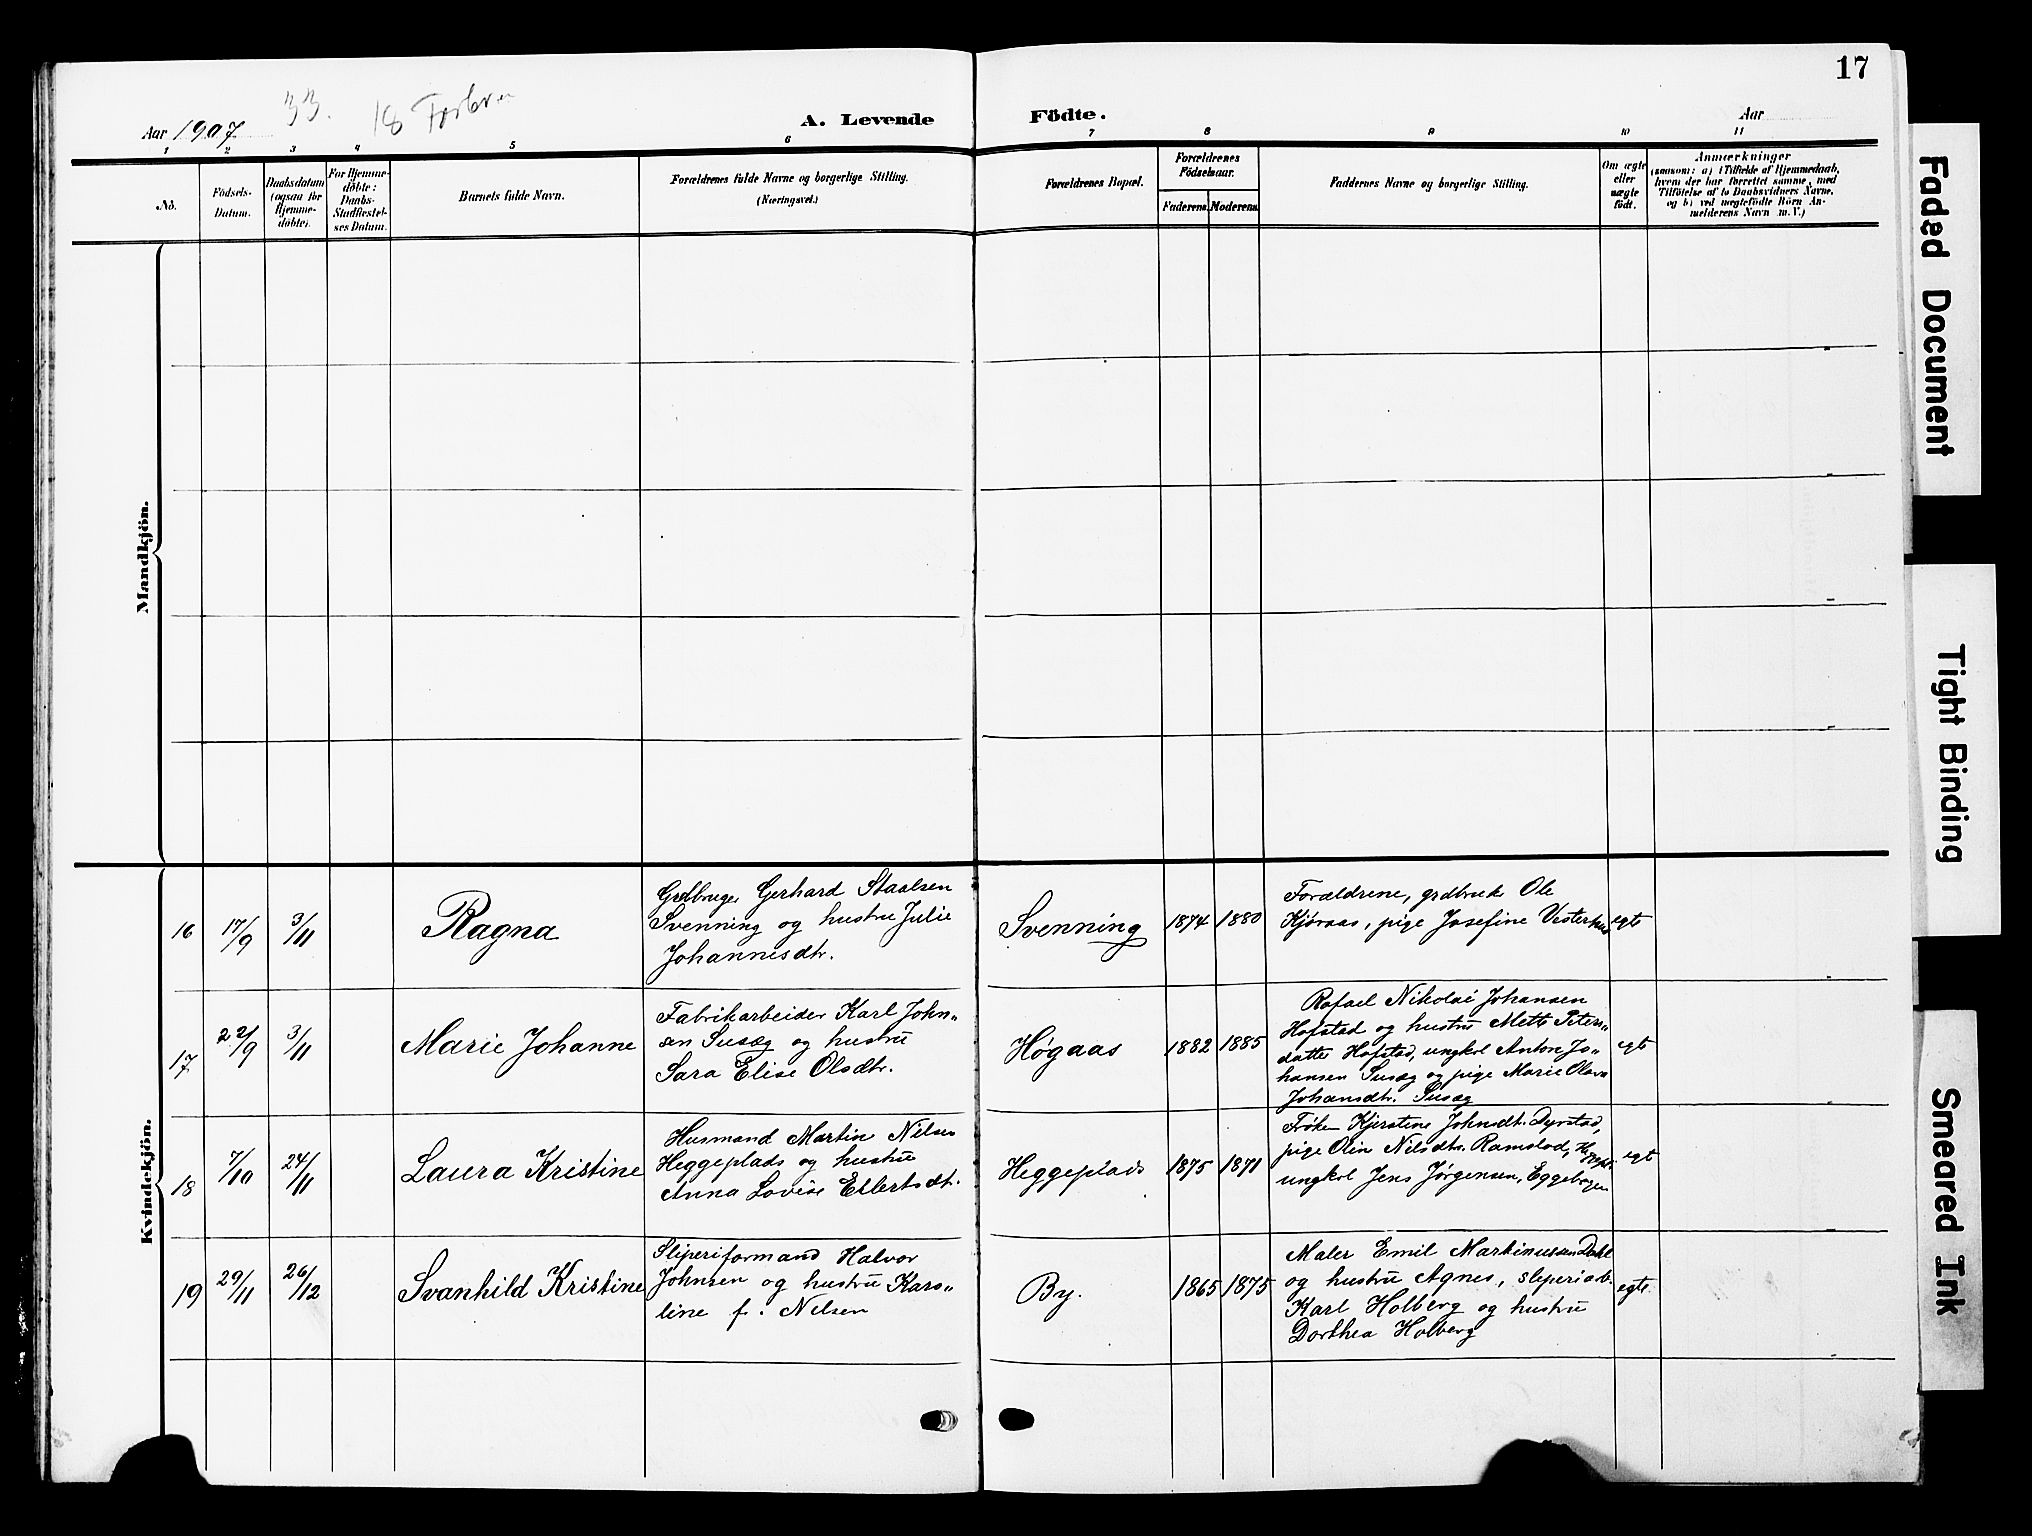 17
33. 18
Aar 1907
A. Levende Födte.
Aar
1 2 3 4 5 6 7 8 9 10 11
No.
Födsels-
Datum.
Daabsdatum
(ogsaa for
Hjemme-
döbte).
For Hjemme-
döbte:
Daabs-
Stadfæstel-
ses Datum.
Barnets fulde Navn.
Forældrenes fulde Navne og borgerlige Stilling.
(Næringsvei.)
Forældrenes Bopæl.
Forældrenes
Födselsaar.
Faderens. Moderens.
Faddernes Navne og borgerlige Stilling.
Om ægte
eller
uægte
födt.
Anmærkninger
(saasom: a) i Tilfælde af Hjemmedaab,
hvem der har forrettet samme, med
Tilföielse af to Daabsvidners Navne,
og b) ved uægtefödte Börn An-
melderens Navn m. V.)
Mandkjön.
Kvindekjön.
16
17/9
3/11
Ragna
Grdbruger Gerhard Staalsen
Svenning og hustru Julie
Johannesdtr.
Svenning
1874
1880
Forældrene, grdbruk Ole
Kjøraas, pige Josefine Vesterhus
egt
17
22/9
3/11
Marie Johanne
Fabrikarbeider Karl John„
sen Susæg og hustru
Sara Elise Olsdtr.
Høgaas
1882
1885
Rafael Nikolai Johansen
Hofstad og hustru Mette Peters„
datter Hofstad, ungkrl Anton Jo„
hansen Susæg og pige Marie Olava
Johansdtr. Susæg
egt
18
7/10
24/11
Laura Kristine
Husmand Martin Nilsen
Heggeplads og hustru
Anna Lovise Ellertsdt.
Heggeplads
1875
1871
Frøken Kjerstine Johnsdt. Dyrstad,
pige Olin Nilsdtr. Ramstad,
ungkrl Jens Jørgensen, Eggebogen
egt
19
29/11
26/12
Svanhild Kristine
Sliperiformand Halvor
Johnsen og hustru Karo„
line f. Nilsen
By.
1865
1875
Maler Emil Martinussen Dahl
og hustru Agnes, sliperiarb.
Karl Holberg og hustru
Dorthea Holberg
egte
Faded Document
Tight Binding
Smeared Ink